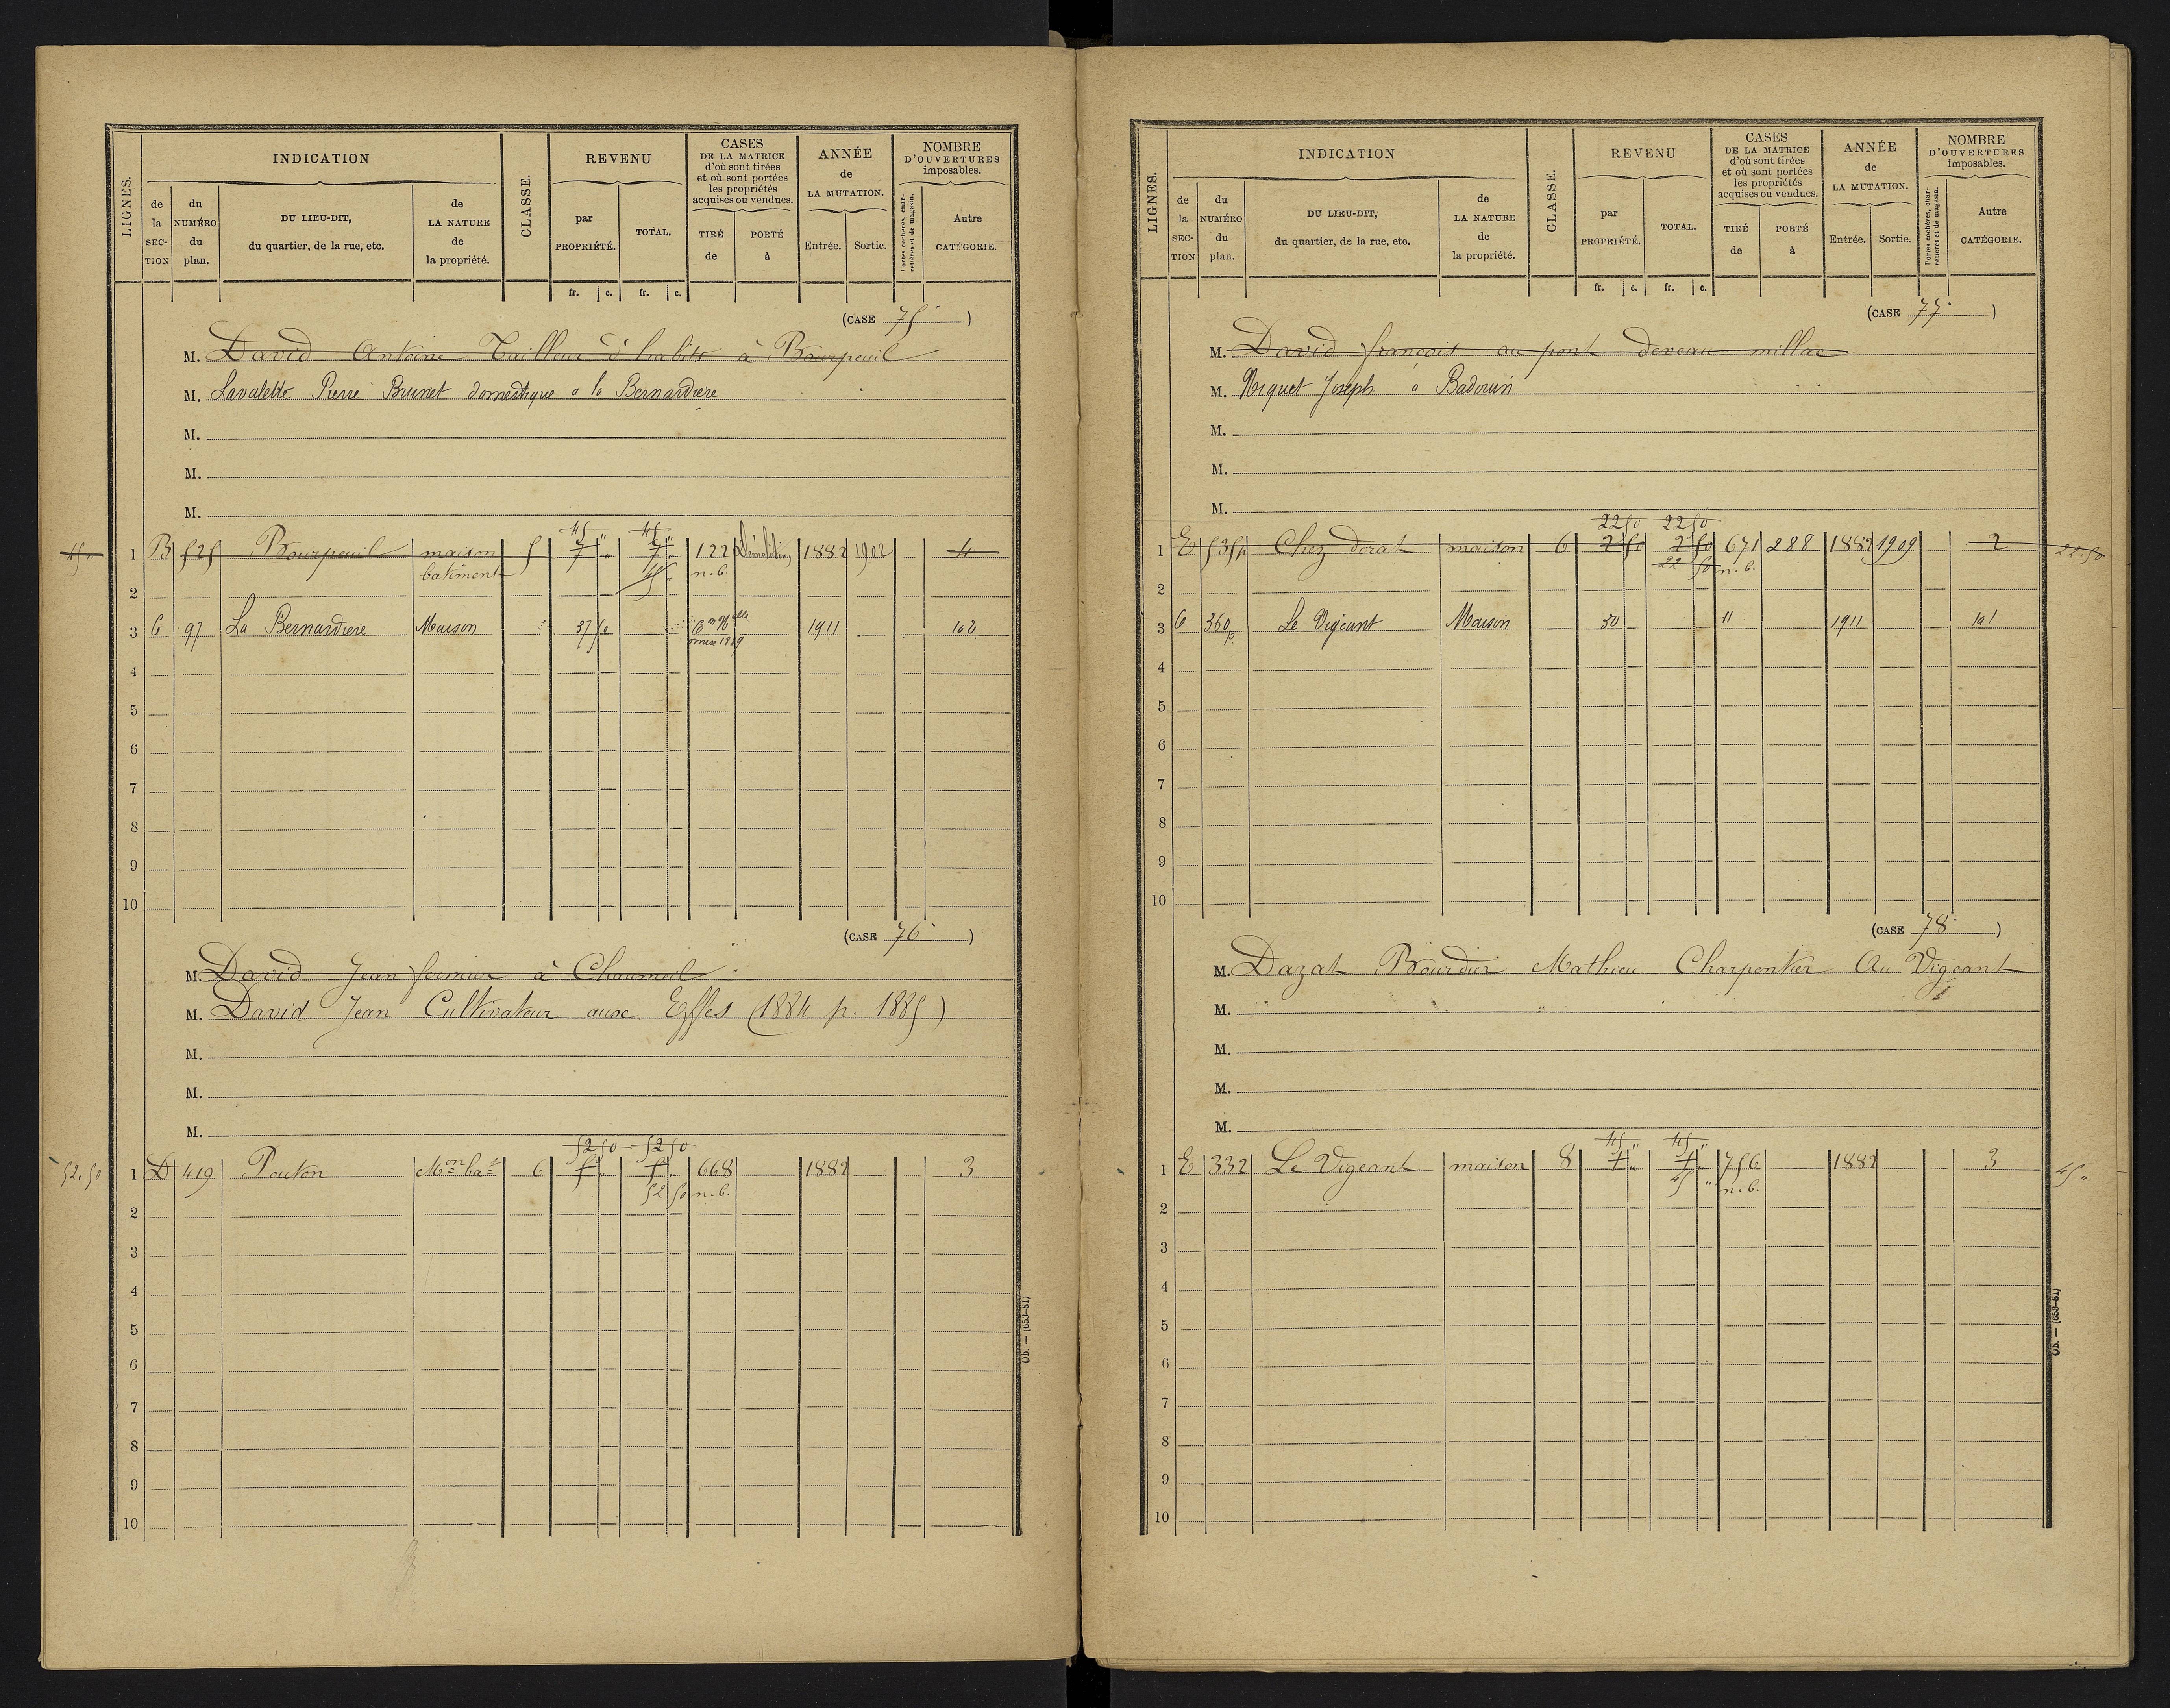 LIGNES.
INDICATION
CLASSE.
REVENU
CASES
DE LA MATRICE
d'où sont tirées
et où sont portées
les propriétés
acquises ou vendues.
ANNÉE
de
LA MUTATION.
NOMBRE
D'OUVERTURES
imposables.
de la SECTION
du NUMÉRO du plan.
DU LIEU-DIT,
du quartier, de la rue, etc.
de LA NATURE de la propriété.
par PROPRIÉTÉ.
TOTAL.
TIRÉ de
PORTÉ à
Entrée.
Sortie.
Portes cochères, charretières et de magasin.
Autre CATÉGORIE.
fr. c. fr. c.
(CASE 75)
M. David Antoine Tailleur d'habits à Bourpeuil
M. Lavalette Pierre Brunet domestique à la Bernardiere
M.
M.
M.
45 " 45 "
45 " 1 B 525 Bourpeuil maison 5 7 " 7 " 122 Démolition 1882 1902 4
batiment 45 n.C.
2
3 C 97 La Bernardiere Maison 37 50 1911 102
4
5
6
7
8
9
10
(CASE 76)
M. David Jean fermier à Chaumeil
M. David Jean Cultivateur aux Effes (1884 p. 1885)
M.
M.
M.
52 50 52 50
52.50 1 D 419 Pouton Mon bat 6 668 1882 3
52 50 n.C.
2
3
4
5
6
7
8
9
10
Ob. — (653-81)
LIGNES.
INDICATION
CLASSE.
REVENU
CASES
DE LA MATRICE
d'où sont tirées
et où sont portées
les propriétés
acquises ou vendues.
ANNÉE
de
LA MUTATION.
NOMBRE
D'OUVERTURES
imposables.
de la SECTION
du NUMÉRO du plan.
DU LIEU-DIT,
du quartier, de la rue, etc.
de LA NATURE de la propriété.
par PROPRIÉTÉ.
TOTAL.
TIRÉ de
PORTÉ à
Entrée.
Sortie.
Portes cochères, charretières et de magasin.
Autre CATÉGORIE.
fr. c. fr. c.
(CASE 77)
M. David françois au pont deveau millac
M. Niquet Joseph à Badouin
M.
M.
M.
22 50 22 50
1 E 535p Chez dorat maison 6 2 50 2 50 671 288 1882 1909 2 22.50
22 50 n.C.
2
3 C 360p Le Vigeant Maison 30 " 1911 101
4
5
6
7
8
9
10
(CASE 78)
M. Dazat Bourdier Mathieu Charpentier Au Vigeant
M.
M.
M.
M.
45 " 45 "
1 E 332 Le Vigeant maison 8 756 1882 3 45 "
45 " n.C.
2
3
4
5
6
7
8
9
10
Ob. — (653-81)